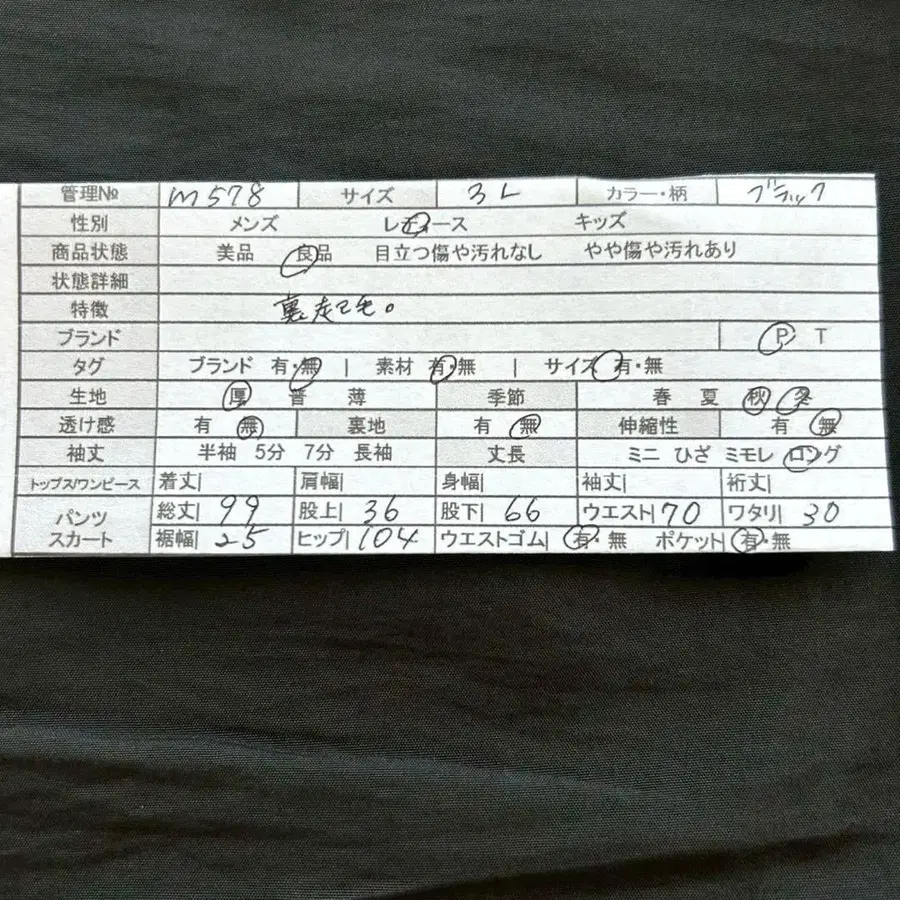 管理№ m578 サイズ 3L カラー・柄 ブラック
性別 メンズ レディース キッズ
商品状態 美品 良品 目立つ傷や汚れなし やや傷や汚れあり
状態詳細
特徴 裏起毛。
ブランド P T
タグ ブランド 有・無 | 素材 有・無 | サイズ 有・無
生地 厚 普 薄 季節 春 夏 秋 冬
透け感 有 無 裏地 有 無 伸縮性 有 無
袖丈 半袖 5分 7分 長袖 丈長 ミニ ひざ ミモレ ロング
トップス/ワンピース 着丈| 肩幅| 身幅| 袖丈| 裄丈|
パンツ 総丈| 99 股上| 36 股下| 66 ウエスト| 70 ワタリ| 30
スカート 裾幅| 25 ヒップ| 104 ウエストゴム| 有・無 ポケット| 有・無